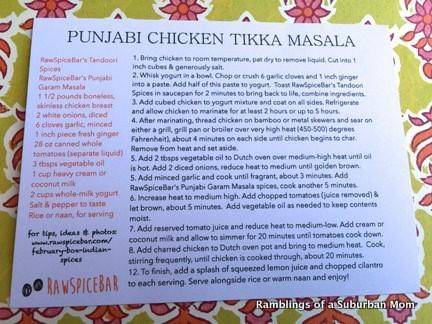 PUNJABI CHICKEN TIKKA MASALA
RawSpiceBar's Tandoori
Spices
RawSpiceBar's Punjabi
Garam Masala
1 1/2 pounds boneless,
skinless chicken breast
2 white onions, diced
6 cloves garlic, minced
1 inch piece fresh ginger
28 oz canned whole
tomatoes (separate liquid)
3 tbsps vegetable oil
1 cup heavy cream or
coconut milk
2 cups whole-milk yogurt
Salt & pepper to taste
Rice or naan, for serving
for tips, ideas & photos:
www.rawspicebar.com/
february-box-indian-
spices
RAWSPICEBAR
1. Bring chicken to room temperature, pat dry to remove liquid. Cut into 1
inch cubes & generously salt.
2. Whisk yogurt in a bowl. Chop or crush 6 garlic cloves and 1 inch ginger
into a paste. Add half of this paste to yogurt. Toast RawSpiceBar's Tandoori
Spices in saucepan for 2 minutes to bring back to life, combine ingredients.
3. Add cubed chicken to yogurt mixture and coat on all sides. Refrigerate
and allow chicken to marinate for at least 2 hours or up to 5 hours.
4. After marinating, thread chicken on bamboo or metal skewers and sear on
either a grill, grill pan or broiler over very high heat (450-500) degrees
Fahrenheit), about 4 minutes on each side until chicken begins to char.
Remove from heat and set aside.
5. Add 2 tbsps vegetable oil to Dutch oven over medium-high heat until oil
is hot. Add 2 diced onions, reduce heat to medium until golden brown.
5. Add minced garlic and cook until fragrant, about 3 minutes. Add
RawSpiceBar's Punjabi Garam Masala spices, cook another 5 minutes.
6. Increase heat to medium high. Add chopped tomatoes (juice removed) &
let brown, about 5 minutes. Add vegetable oil as needed to keep contents
moist.
7. Add reserved tomato juice and reduce heat to medium-low. Add cream or
coconut milk and allow to simmer for 20 minutes until tomatoes cook down.
8. Add charred chicken to Dutch oven pot and bring to medium heat. Cook,
stirring frequently, until chicken is cooked through, about 20 minutes.
12. To finish, add a splash of squeezed lemon juice and chopped cilantro
to each serving. Serve alongside rice or warm naan and enjoy!
Ramblings of a Suburban Mom